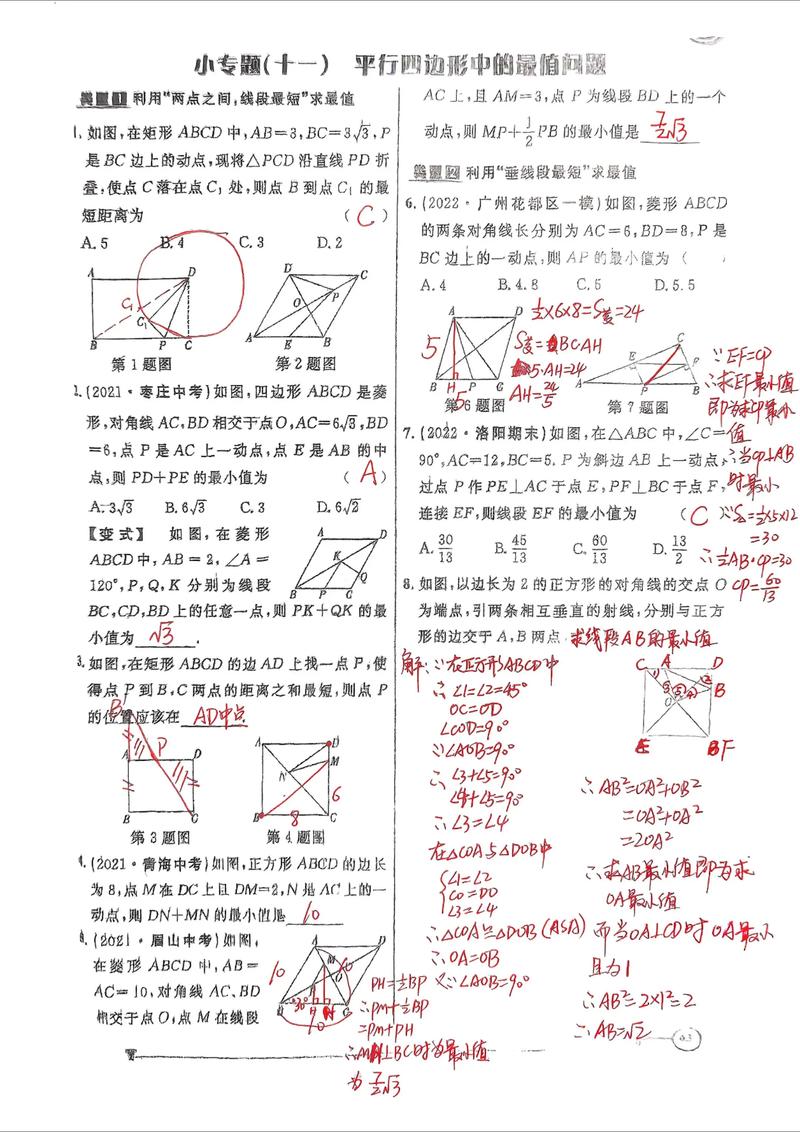 小专题(十一) 平行四边形中的最值问题
类型1 利用“两点之间,线段最短”求最值
1.如图,在矩形 ABCD 中,AB=3,BC=3√3,P
是 BC 边上的动点,现将△PCD 沿直线 PD 折
叠,使点 C 落在点 C₁ 处,则点 B 到点 C₁ 的最
短距离为 ( C )
A.5 B.4 C.3 D.2
A D C₁ C₁ B P C
D C O P A E B
第 1 题图 第 2 题图
2.(2021·枣庄中考)如图,四边形 ABCD 是菱
形,对角线 AC,BD 相交于点 O,AC=6√3,BD
=6,点 P 是 AC 上一动点,点 E 是 AB 的中
点,则 PD+PE 的最小值为 ( A )
A.3√3 B.6√3 C.3 D.6√2
【变式】 如图,在菱形
ABCD 中,AB=2,∠A=
120°,P,Q,K 分别为线段
BC,CD,BD 上的任意一点,则 PK+QK 的最
小值为 √3 .
A D K Q B P C
3.如图,在矩形 ABCD 的边 AD 上找一点 P,使
得点 P 到 B,C 两点的距离之和最短,则点 P
的位置应该在 AD中点.
B' P A D B C
A D M N B C 6 8
第 3 题图 第 4 题图
4.(2021·青海中考)如图,正方形 ABCD 的边长
为 8,点 M 在 DC 上且 DM=2,N 是 AC 上的一
动点,则 DN+MN 的最小值是 10
5.(2021·眉山中考)如图,
在菱形 ABCD 中,AB=
AC=10,对角线 AC、BD
相交于点 O,点 M 在线段
A D M O 10 30° H C 10
PH=½BP
∴PM+½BP
=PM+PH
BC时为最小值
为 7/2√3
AC 上,且 AM=3,点 P 为线段 BD 上的一个
动点,则 MP+½PB 的最小值是 7/2√3
类型2 利用“垂线段最短”求最值
6.(2022·广州花都区一模)如图,菱形 ABCD
的两条对角线长分别为 AC=6,BD=8,P 是
BC 边上的一动点,则 AP 的最小值为 ( )
A.4 B.4.8 C.5 D.5.5
A D 5 B H P C 5
½×6×8=S菱=24
S菱=BC·AH
5·AH=24
AH=24/5
C E F A P B
第 6 题图 第 7 题图
∵EF=CP
∴求EF最小值
即为求CP最小
值
∴当CP⊥AB
时最小
∵S=½×5×12
=30
∴½AB·CP=30
CP=60/13
7.(2022·洛阳期末)如图,在△ABC 中,∠C=
90°,AC=12,BC=5. P 为斜边 AB 上一动点,
过点 P 作 PE⊥AC 于点 E,PF⊥BC 于点 F,
连接 EF,则线段 EF 的最小值为 ( C )
A.30/13 B.45/13 C.60/13 D.13/2
8.如图,以边长为 2 的正方形的对角线的交点 O
为端点,引两条相互垂直的射线,分别与正方
形的边交于 A,B 两点,求线段AB的最小值
解:∵在正方形ABCD中
∴∠1=∠2=45°
OC=OD
∠COD=90°
∵∠AOB=90°
∴∠3+∠5=90°
∠4+∠5=90°
∴∠3=∠4
在△COA与△DOB中
∠1=∠2
CO=DO
∠3=∠4
∴△COA≌△DOB(ASA)
∴OA=OB
又∵∠AOB=90°
C A D B O F
∴AB²=OA²+OB²
=OA²+OA²
=2OA²
∴求AB最小值即为求
OA最小值
而当OA⊥CD时OA最小
且为1
∴AB²=2×1²=2
∴AB=√2
63